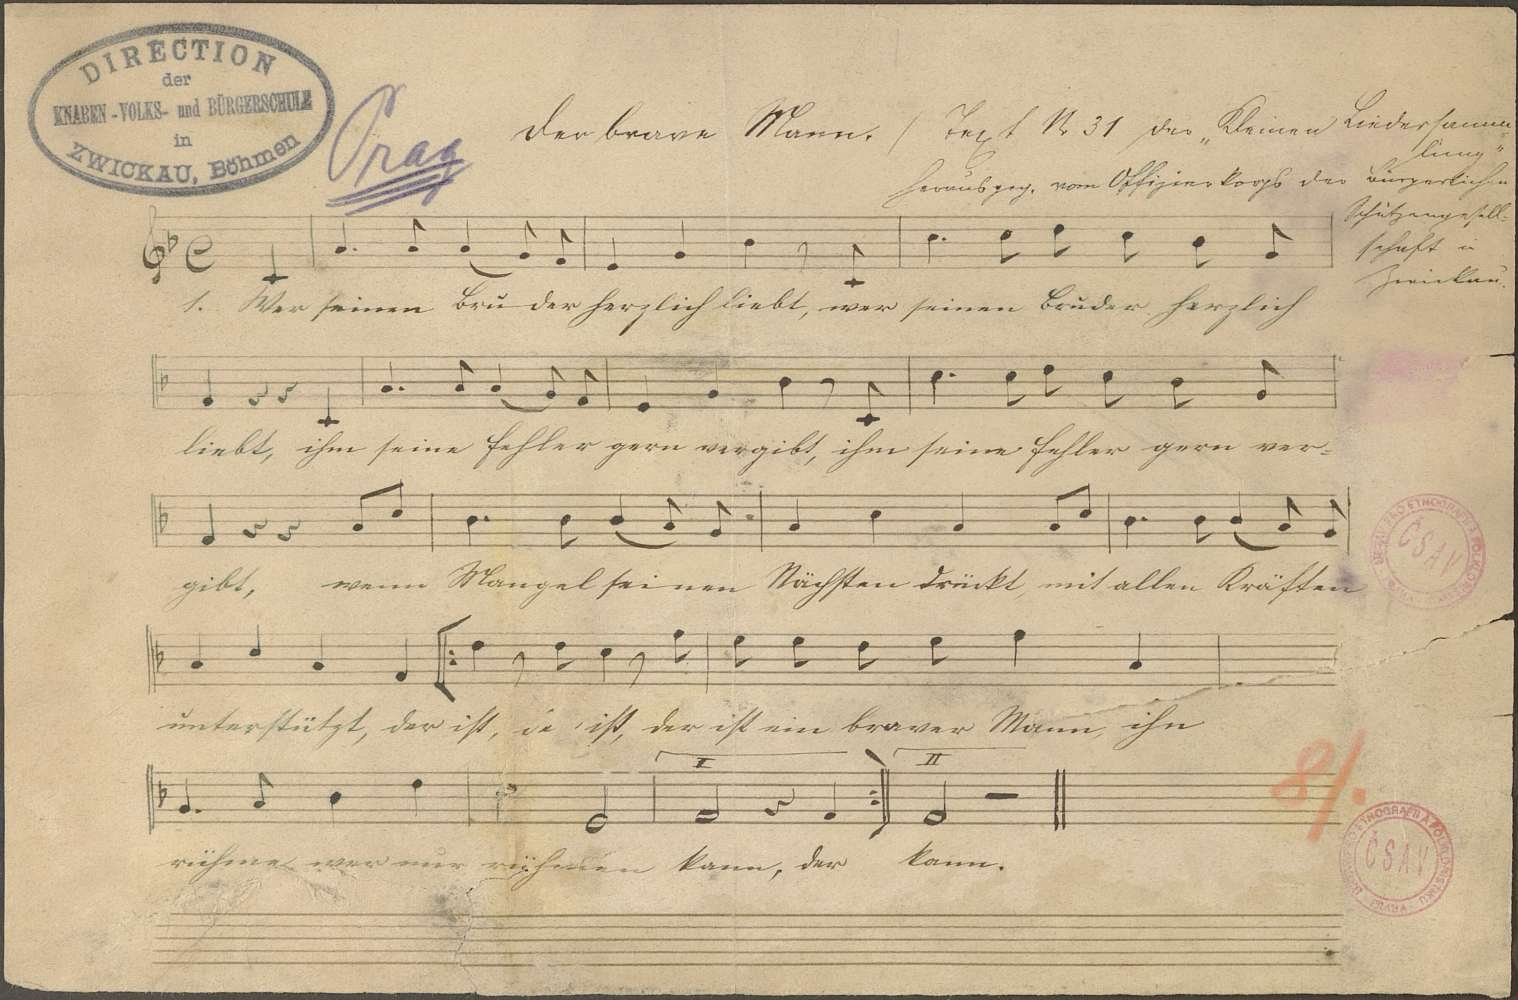 DIRECTION
der
KNABEN-VOLKS- und BÜRGERSCHULE
in
ZWICKAU, Böhmen
Prag
Der brave Mann. (Text No 31 der „Kleinen Liedersamm-
lung"
herausgeg. vom Offizierkorps der bürgerlichen
Schützengesell-
schaft in
Zwickau.
1. Wer seinen Bru-der herzlich liebt, wer seinen Bruder herzlich
liebt, ihm seine Fehler gern vergibt, ihm seine Fehler gern ver-
gibt, wenn Mangel seinen Nächsten drückt, mit allen Kräften
unterstützt, der ist, der ist, der ist ein braver Mann, ihn
I
II
rühme wer nur rühmen kann, der kann.
8/.
ČSAV
ČSAV